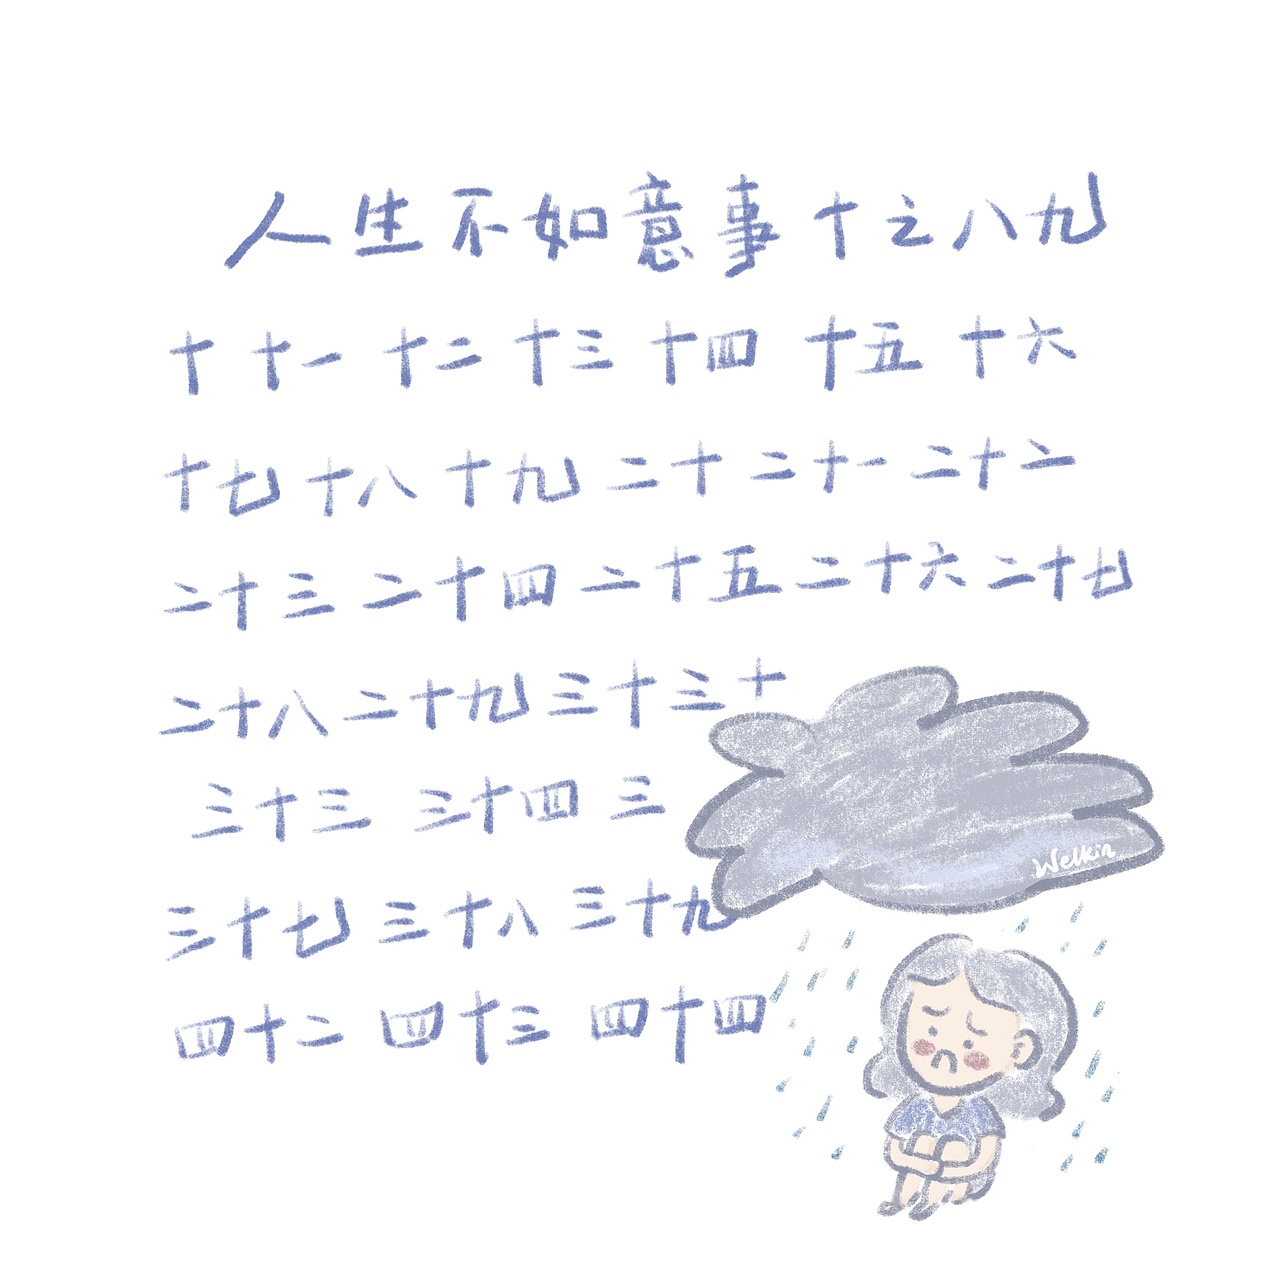 人生不如意事十之八九
十 十一 十二 十三 十四 十五 十六
十七 十八 十九 二十 二十一 二十二
二十三 二十四 二十五 二十六 二十七
二十八 二十九 三十 三十
三十三 三十四 三
三十七 三十八 三十九
四十二 四十三 四十四
Welkin